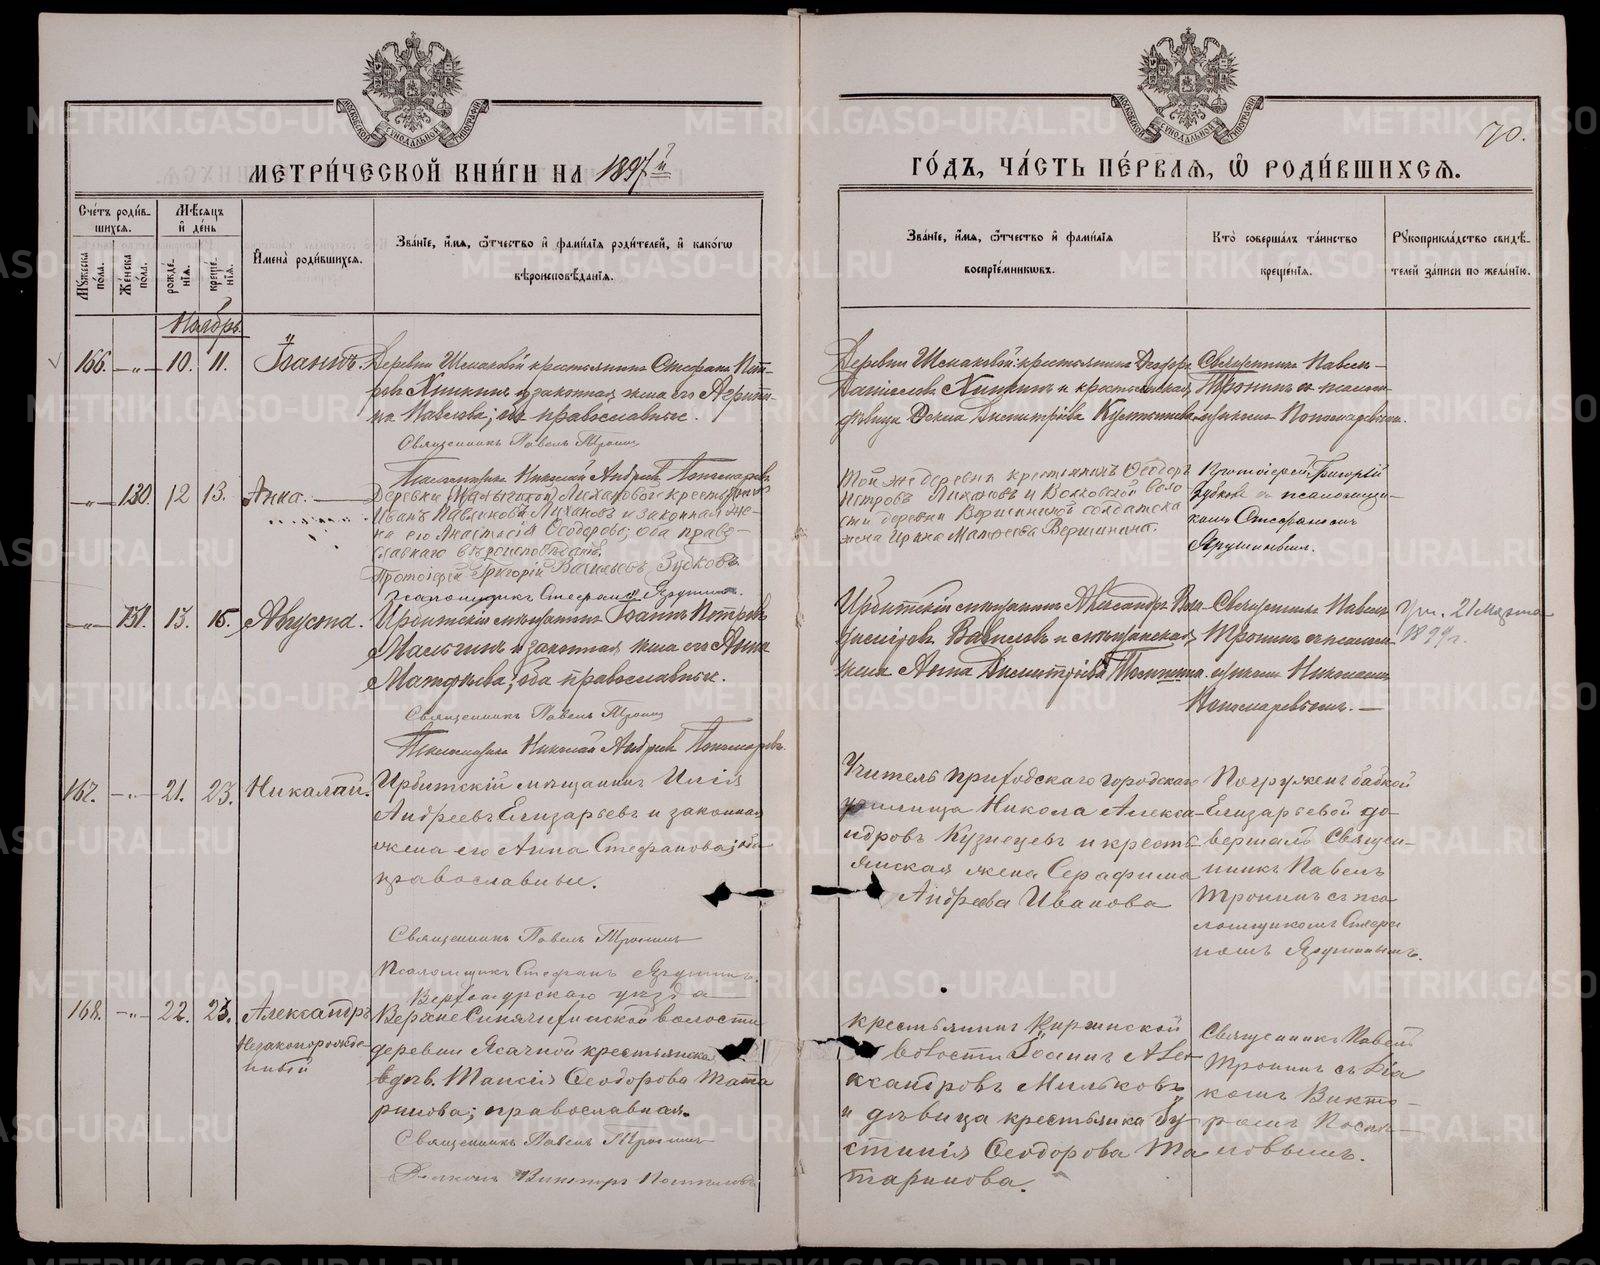 70.
МЕТРИ́ЧЕСКОЙ КНИ́ГИ НА 1897й
ГО́ДЪ, ЧА́СТЬ ПЕ́РВАѦ, Ѡ҆ РОДИ́ВШИХСѦ.
Сче́тъ роди́в-
шихся.
Мѣ́сяцъ
и҆ де́нь
Му́жеска
по́ла.
Же́нска
по́ла.
рожде́-
нїя.
креще́-
нїя.
И҆мена̀ роди́вшихся.
Зва́нїе, и҆́мя, ѻ҆́тчество и҆ фами́лїя роди́телей, и҆ како́гѡ
вѣроисповѣ́данїя.
Зва́нїе, и҆́мя, ѻ҆́тчество и҆ фами́лїя
воспрїе́мникѡвъ.
Кто̀ соверша́лъ та́инство
креще́нїя.
Рукоприкла́дство свидѣ́-
телей за́писи по жела́нїю.
Ноябрь
166. — „ — 10. 11.
Іоаннъ.
Деревни Шмаковой крестьянинъ Стефанъ Пет-
ровъ и законная жена его Агрипи-
на Павлова; оба православные.
Священникъ Павелъ Тронинъ
Псаломщикъ Николай Андреевъ Пономаревъ
Деревни Шмаковой крестьянинъ
и крестьянская
дѣвица Димитріева
Священникъ Павелъ
Тронинъ съ псалом-
щикомъ Пономаревымъ.
— „ — 130. 12 13.
Анна.
Деревни (Малыгиной) Лихановой крестьянинъ
Иванъ Лихановъ и законная же-
на его Анастасія Ѳеодорова; оба право-
славнаго вѣроисповѣданія.
Протоіерей Григорій Васильевъ Зубковъ
Псаломщикъ Стефанъ Ярушинъ.
Той же деревни крестьянинъ Ѳеодоръ
Петровъ Лихановъ и Волковской воло-
сти деревни Вершининой солдатска
жена Ирина Матѳеева Вершинина.
Протоіерей Григорій
Зубковъ съ псаломщи-
комъ Стефаномъ
Ярушинымъ.
— „ — 131. 13. 15.
Августа.
Ирбитскій мѣщанинъ Іоаннъ Петровъ
Малыгинъ и законная жена его Анна
Матѳіева; оба православные.
Священникъ Павелъ Тронинъ
Псаломщикъ Николай Андреевъ Пономаревъ.
Ирбитскій мѣщанинъ Александръ
Вавиловъ и мѣщанская
жена Анна Димитріева
Священникъ Павелъ
Тронинъ съ псалом-
щикомъ Николаемъ
Пономаревымъ. —
Ум. 21 Марта
1899 г.
167. — „ — 21. 23.
Николай.
Ирбитскій мѣщанинъ Илія
Андреевъ Елизарьевъ и законная
жена его Анна Стефанова; оба
православные.
Священникъ Павелъ Тронинъ
Псаломщикъ Стефанъ Ярушинъ.
Учитель приходскаго городскаго
училища Никола Алекса-
ндровъ Кузнецевъ и кресть-
янская жена Серафима
Андреева Иванова
Погруженъ бабкой
Елизарьевой до-
вершалъ Священ-
никъ Павелъ
Тронинъ съ пса-
ломщикомъ Стефа-
номъ Ярушинымъ.
168. — „ — 22. 23.
Александръ
Незаконнорожде-
нный
Верхотурскаго уѣзда
Верхне Синячихинской волости
деревни Ясачной крестьянская
вдов. Таисія Ѳеодорова Тата
ринова; православная.
Священникъ Павелъ Тронинъ
Діаконъ Викторъ
крестьянинъ Киргинской
волости Іоаннъ Але-
ксандровъ Мильковъ
и дѣвица крестьянка Іу-
стинія Ѳеодорова Та
таринова.
Священникъ Павелъ
Тронинъ съ Діа
кономъ Викто-
ромъ Поспѣ-
ловымъ.
METRIKI.GASO-URAL.RU